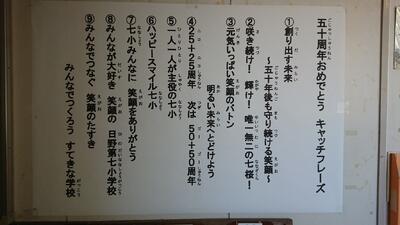 五十周年おめでとう キャッチフレーズ
①創り出す未来
～五十年後も守り続ける笑顔～
②咲き続け！輝け！唯一無二の七桜！
③元気いっぱい笑顔のバトン
明るい未来へとどけよう
④25+25周年 次は 50+50周年
⑤一人一人が主役の七小
⑥ハッピースマイル七小
⑦七小みんなに 笑顔をありがとう
⑧みんなが大好き 笑顔の 日野第七小学校
⑨みんなでつなぐ 笑顔のたすき
みんなでつくろう すてきな学校